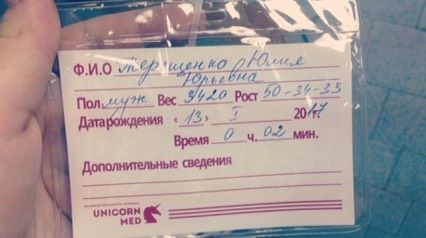 Ф.И.О Терещенко Юлия
Юрьевна
Пол муж Вес 3420 Рост 50-34-33
Дата рождения «13» I 2017.
Время 0 ч. 02 мин.
Дополнительные сведения
UNICORN
MED